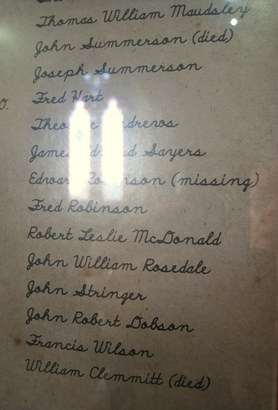 Thomas William Maudsley
John Summerson (died)
Joseph Summerson
Fred Hart
Andrews
James Edmund Sayers
Edward Robinson (missing)
Fred Robinson
Robert Leslie McDonald
John William Rosedale
John Stringer
John Robert Dobson
Francis Wilson
William Clemmitt (died)